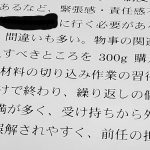 あるなど、緊張感・責任感
に行く必要があ
間違いも多い。物事の関連
すべきところを 300g 購
材料の切り込み作業の習得
けで終わり、繰り返しの個
満が多く、受け持ちから外
誤解されやすく、前任の担